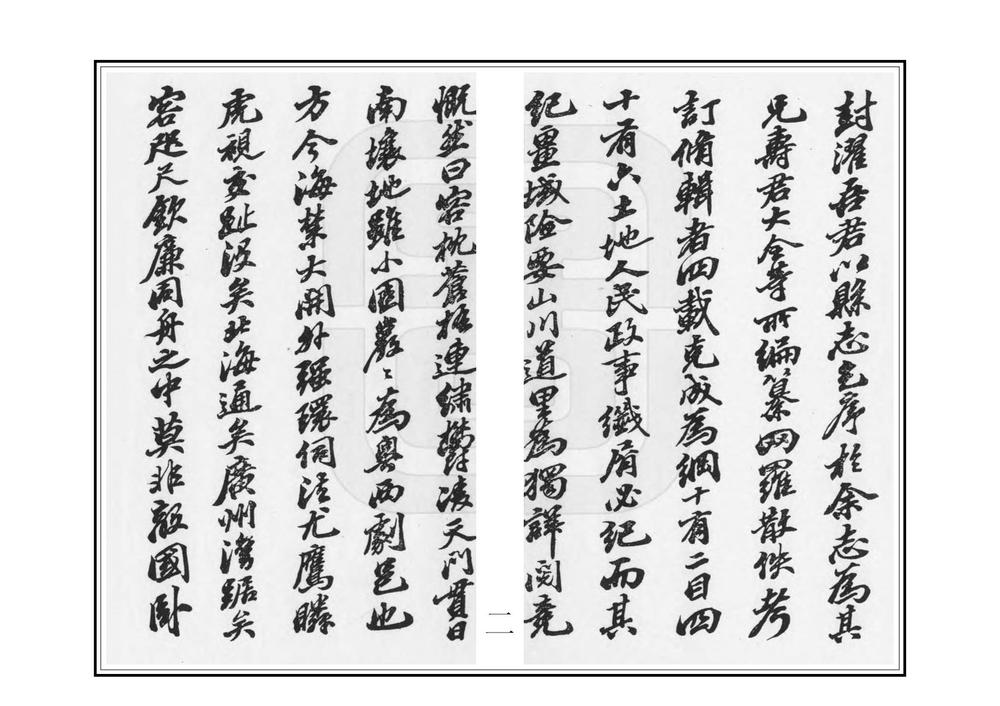 封濯吾君以縣志乞序於余志為其
兄壽君大令等所編纂網羅散佚考
訂脩輯者四載克成為綱十有二目四
十有六土地人民政事纖屑必紀而其
紀疆域險要山川道里為獨詳閱竟
慨然曰容枕蒼梧連繡鬱凌天門貫日
南壤地雖小固巖巖為粵西劇邑也
方今海禁大開外強環伺法尤鷹瞵
虎視交趾沒矣北海通矣廣州灣踞矣
容咫尺欽廉同舟之中莫非敵國卧
二